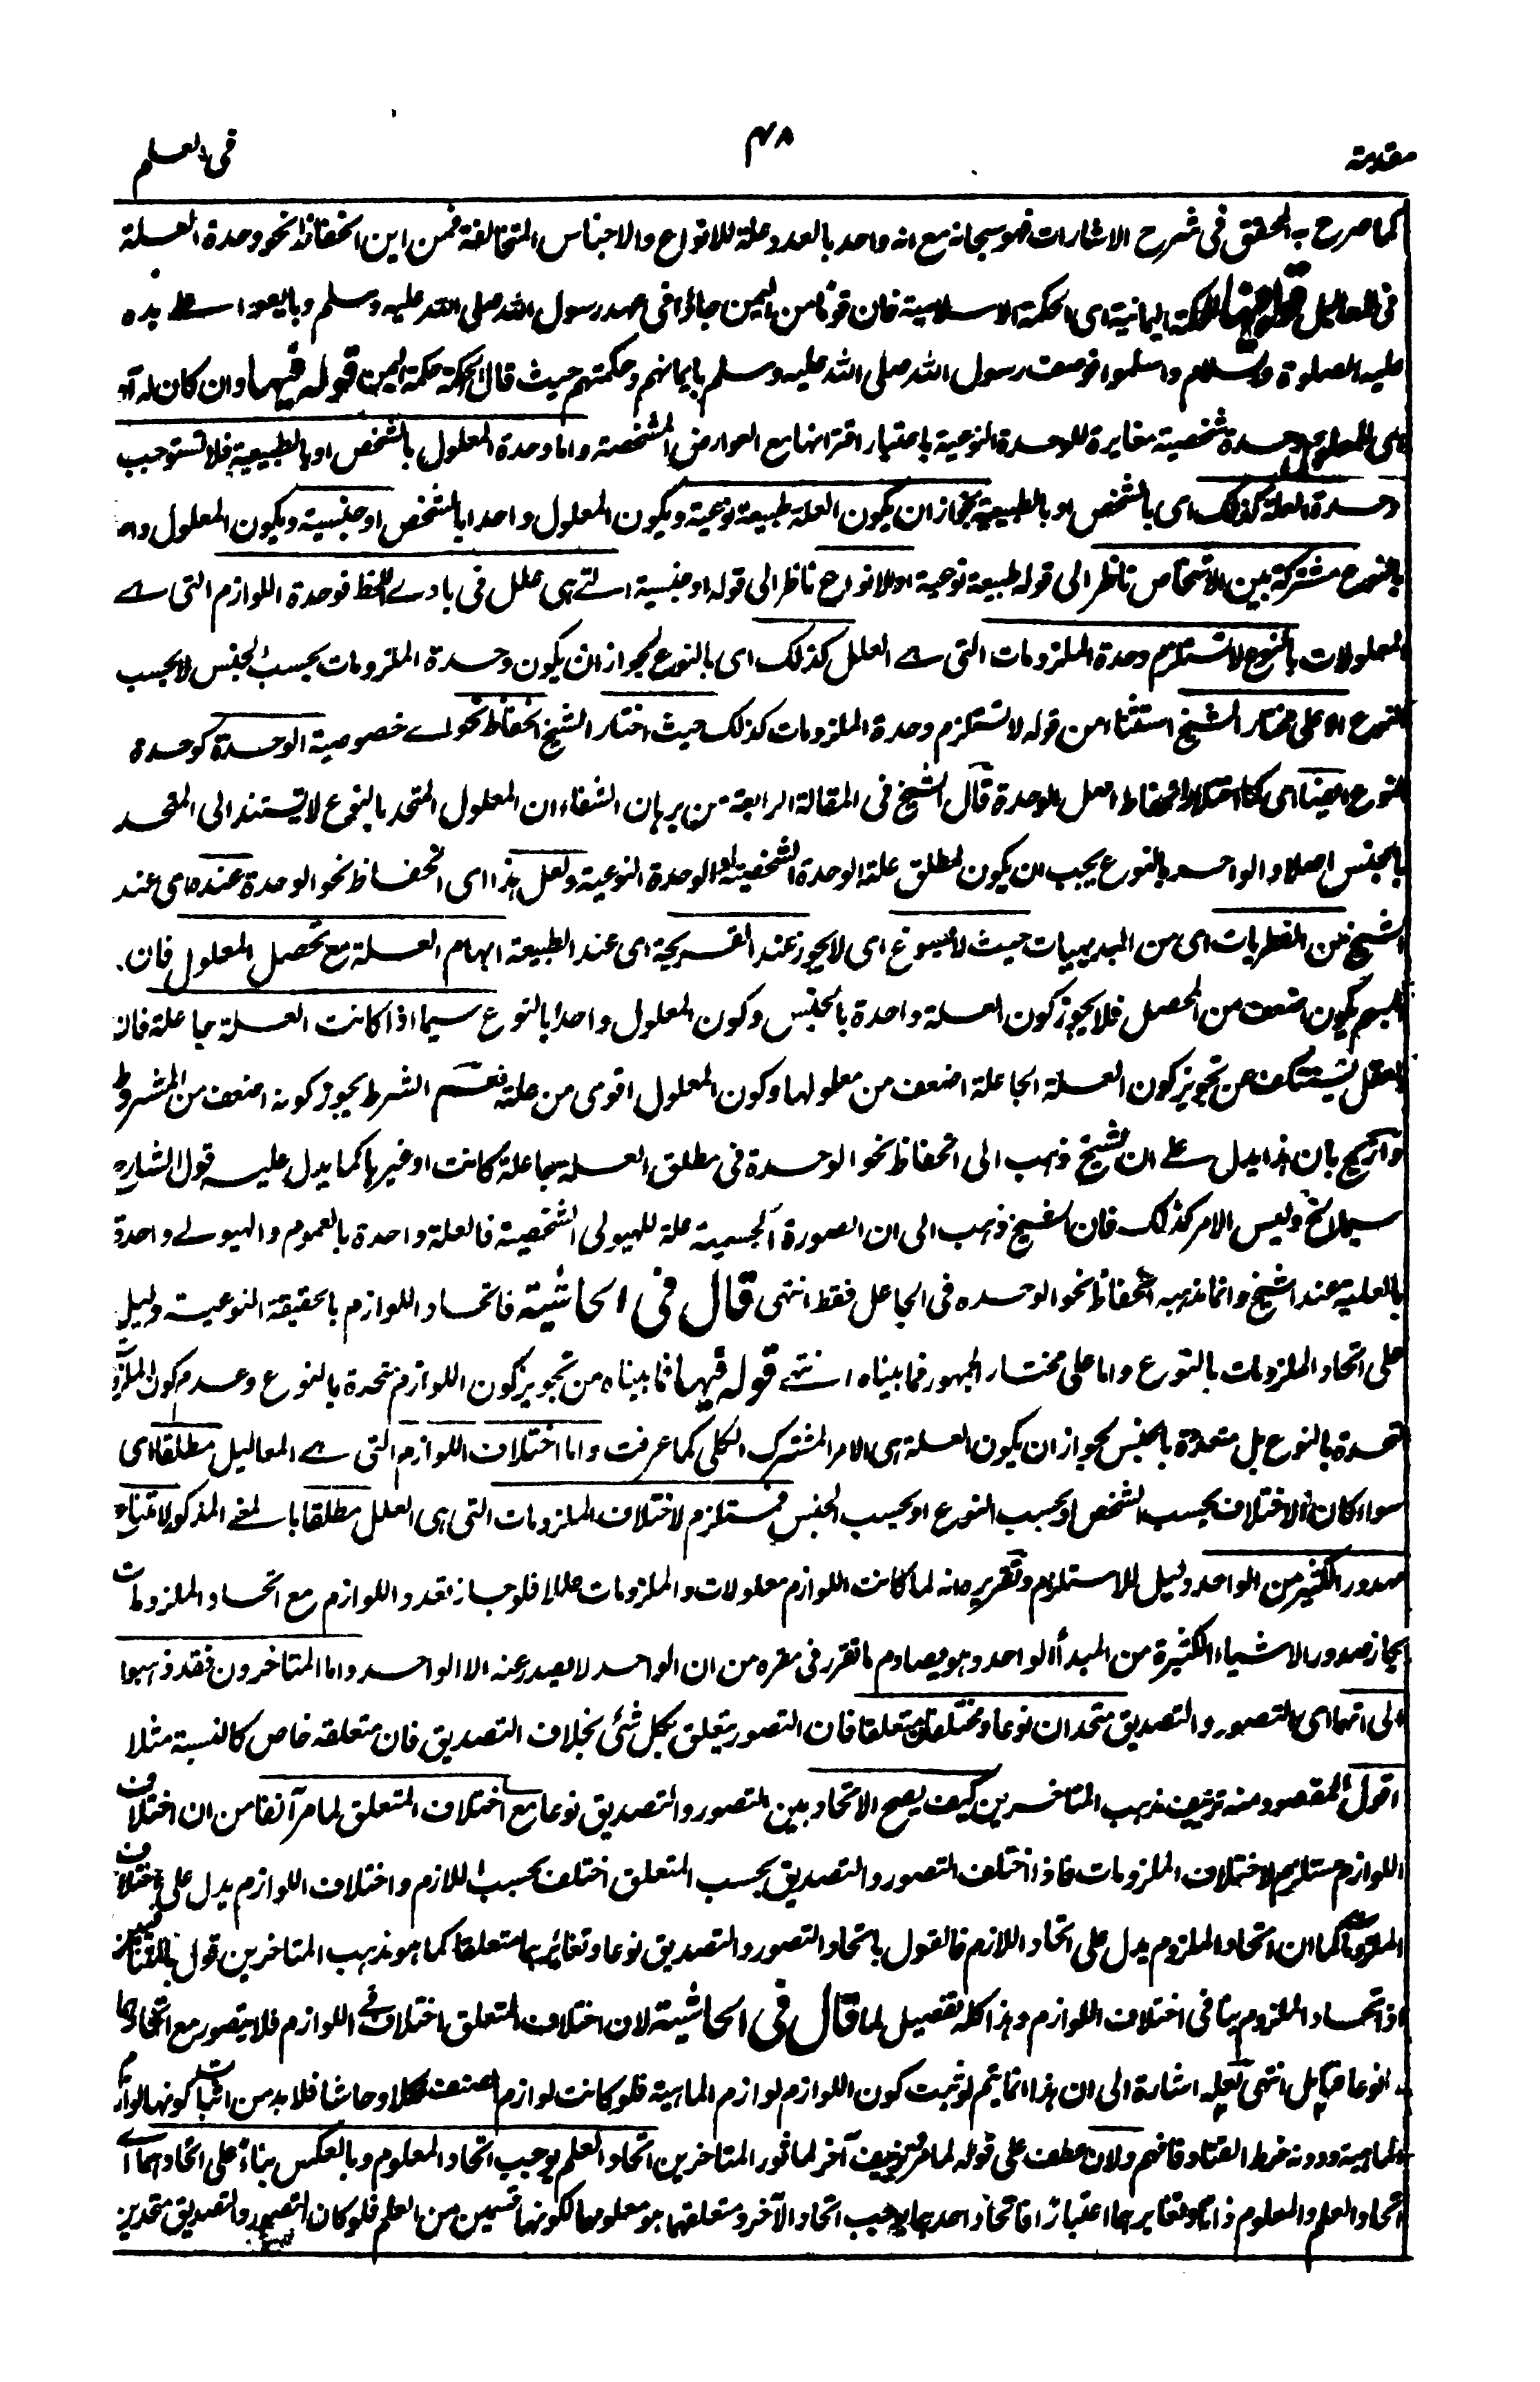 مقدمة
٤٨
في العلم
كما صرح به المحقق في شرح الاشارات فهو سبحانه مع انه واحد بالعدد علة للانواع والاجناس المتخالفة فمن اين انحفاظ نحو وحدة العلة
في المعاليل قوله فيها الحكمة اليمانية اى الحكمة الاسلامية فان قوما من اليمن جاؤا فى عهد رسول الله صلى الله عليه وسلم وبايعوا على يده
عليه الصلوة والسلام واسلموا فوصف رسول الله صلى الله عليه وسلم بايمانهم وحكمتهم حيث قال الحكمة حكمة اليمن قوله فيها وان كان له آه
اى للمعلول وحدة شخصية مغايرة للوحدة النوعية باعتبار اقترانها مع العوارض المشخصة واما وحدة المعلول بالشخص او بالطبيعية فلا تستوجب
وحدة العلة كذلك اى بالشخص او بالطبيعية فيجاز ان يكون العلة طبيعة نوعية ويكون المعلول واحدا بالشخص او جنسية ويكون المعلول واحدا
بالنوع مشتركة بين الاشخاص ناظر الى قوله طبيعة نوعية او الانواع ناظر الى قوله او جنسية التي هى علل فى بادى اللحظ فوحدة اللوازم التى هى
المعلولات بالنوع لا تستلزم وحدة الملزومات التى هى العلل كذلك اى بالنوع لجواز ان يكون وحدة الملزومات بحسب الجنس لا بحسب
النوع الا على مختار الشيخ استثناء من قوله لا تستلزم وحدة الملزومات كذلك حيث اختار الشيخ انحفاظ نحو اى خصوصية الوحدة كوحدة
النوع ايضا اى كما اختار انحفاظ اصل الوحدة قال الشيخ فى المقالة الرابعة من برهان الشفاء ان المعلول المتحد بالنوع لا يستند الى المتحد
بالجنس اصلا والواحد بالنوع يجب ان يكون لمطلق علته الوحدة الشخصية او الوحدة النوعية ولعل هذا اى انحفاظ نحو الوحدة عنده اى عند
الشيخ من الفطريات اى من البديهيات حيث لا يسوغ اى لا يجوز عند القريحة اى عند الطبيعة ابهام العلة مع تحصل المعلول فان
المبهم يكون اضعف من المحصل فلا يجوز كون العلة واحدة بالجنس وكون المعلول واحدا بالنوع سيما اذا كانت العلة جاعلة فان
العقل يستنكف عن تجويز كون العلة الجاعلة اضعف من معلولها وكون المعلول اقوى من علته نعم الشرط يجوز كونه اضعف من المشروط
وازيح بان هذا يدل على ان الشيخ ذهب الى انحفاظ نحو الوحدة فى مطلق العلة جاعلة كانت او غيرها كما يدل عليه قول الشارح
سيما الخ وليس الامر كذلك فان الشيخ ذهب الى ان الصورة الجسمية علة للهيولى الشخصية فالعلة واحدة بالعموم والهيولى واحدة
بالعددية عند الشيخ وانما مذهبه انحفاظ نحو الوحدة فى الجاعل فقط انتهى قال فى الحاشية فاتحاد اللوازم بالحقيقة النوعية دليل
على اتحاد الملزومات بالنوع واما على مختار الجمهور فما بيناه انتهى قوله فيها فما بيناه من تجويز كون اللوازم متحدة بالنوع وعدم كون الملزومات
متحدة بالنوع بل متحدة بالجنس لجواز ان يكون العلة هى الامر المشترك الكلى كما عرفت واما اختلاف اللوازم التى هى المعاليل مطلقا اى
سواء كان الاختلاف بحسب الشخص او بحسب النوع او بحسب الجنس فمستلزم لاختلاف الملزومات التى هى العلل مطلقا بالمعنى المذكور لامتناع
صدور الكثير من الواحد دليل للاستلزام وتقريره انه لما كانت اللوازم معلولات والملزومات عللا فلو جاز تعدد اللوازم مع اتحاد الملزومات
لجاز صدور الاشياء الكثيرة من المبدأ الواحد وهو يصادم ما تقرر فى مقره من ان الواحد لا يصدر عنه الا الواحد واما المتاخرون فقد ذهبوا
الى انهما اى التصور والتصديق متحدان نوعا ومختلفان متعلقا فان التصور يتعلق بكل شئ بخلاف التصديق فان متعلقه خاص كالنسبة مثلا
اقول المقصود منه تزئيف مذهب المتاخرين كيف يصح الاتحاد بين التصور والتصديق نوعا مع اختلاف المتعلق لما مر آنفا من ان اختلاف
اللوازم مستلزم لاختلاف الملزومات فاذا اختلف التصور والتصديق بحسب المتعلق اختلف بحسب اللازم واختلاف اللوازم يدل على اختلاف
الملزوم كما ان اتحاد الملزوم يدل على اتحاد اللازم فالقول باتحاد التصور والتصديق نوعا وتغايرهما متعلقا كما هو مذهب المتاخرين قول بالمتنافيين
اذ اتحاد الملزوم ينافى اختلاف اللوازم وهذا كله تفصيل لما قال فى الحاشية لان اختلاف المتعلق اختلاف فى اللوازم فلا يتصور مع اتحادهما
نوعا فتامل انتهى لعله اشارة الى ان هذا انما يتم لو ثبت كون اللوازم لوازم الماهية فلو كانت لوازم الصنف كلا وحاشا فلا بد من اثبات كونها لوازم
الماهية ودونه خرط القتاد فافهم ولان عطف على قوله لما مر تزئيف آخر لما فور المتاخرين اتحاد العلم يوجب اتحاد المعلوم وبالعكس بناء على اتحادهما اى
اتحاد العلم والمعلوم ذاتا وتغايرهما اعتبارا فاتحاد احدهما يوجب اتحاد الآخر ومتعلقهما هو معلومهما لكونهما قسمين من العلم فلو كان التصور والتصديق متحدين